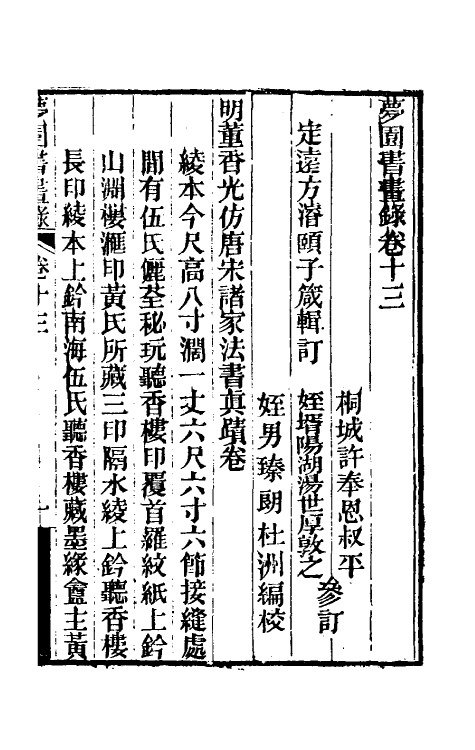 夢園書畫錄卷十三
桐城許奉恩叔平
定遠方濬頤子箴輯訂
姪壻陽湖湯世厚敦之
參訂
姪男臻朗杜洲編校
明董香光仿唐宋諸家法書眞蹟卷
綾本今尺高八寸濶一丈六尺六寸六節接縫處
間有伍氏儷荃秘玩聽香樓印覆首羅紋紙上鈐
山淵樓滙印黃氏所藏三印隔水綾上鈐聽香樓
長印綾本上鈐南海伍氏聽香樓藏墨緣盦主黃
夢園書畫錄
卷十三
一